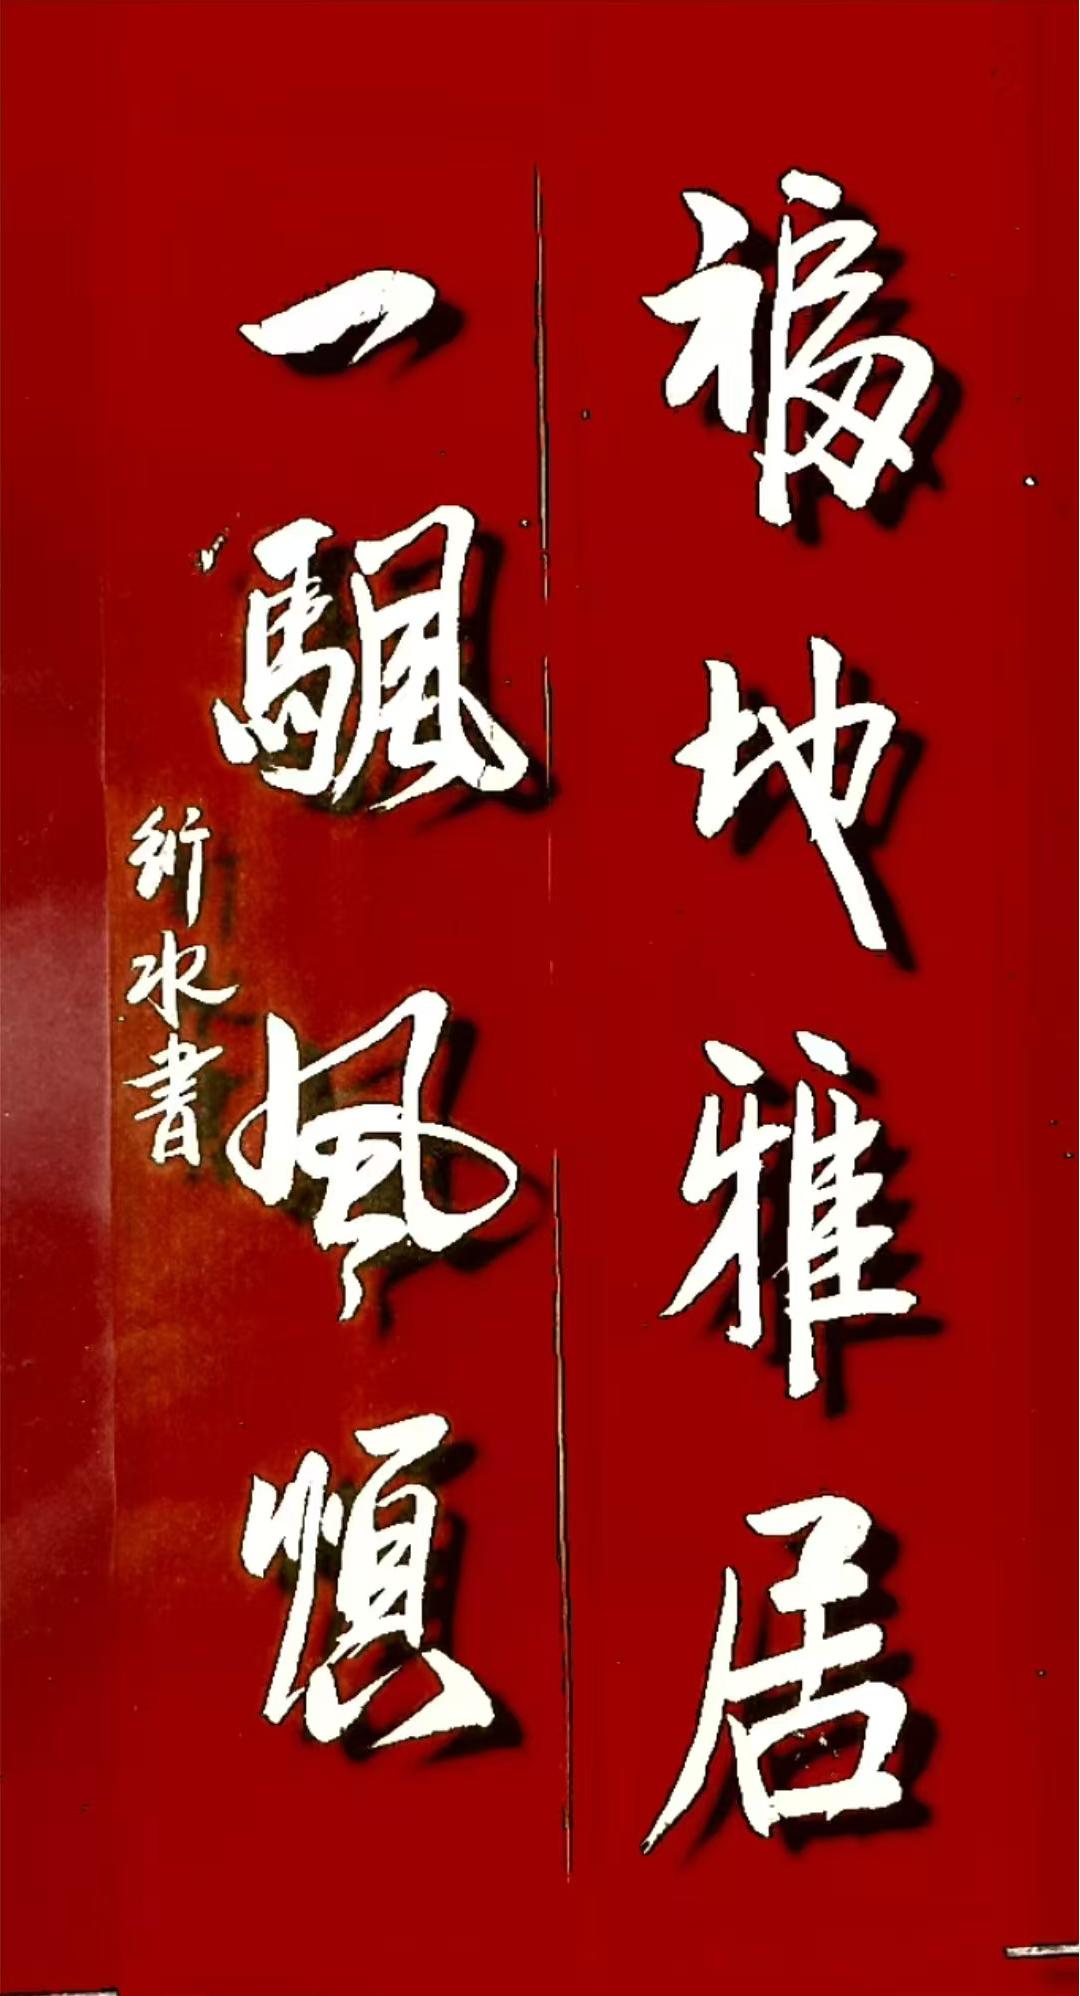 福地雅居
一颿風順
絎水書